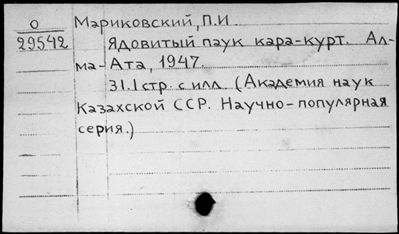 О
29542
Мариковский, П.И
Ядовитый паук кара-курт. Ал-
ма-Ата, 1947.
31.1 стр. с илл. (Академия наук
Казахской ССР. Научно-популярная
серия.)